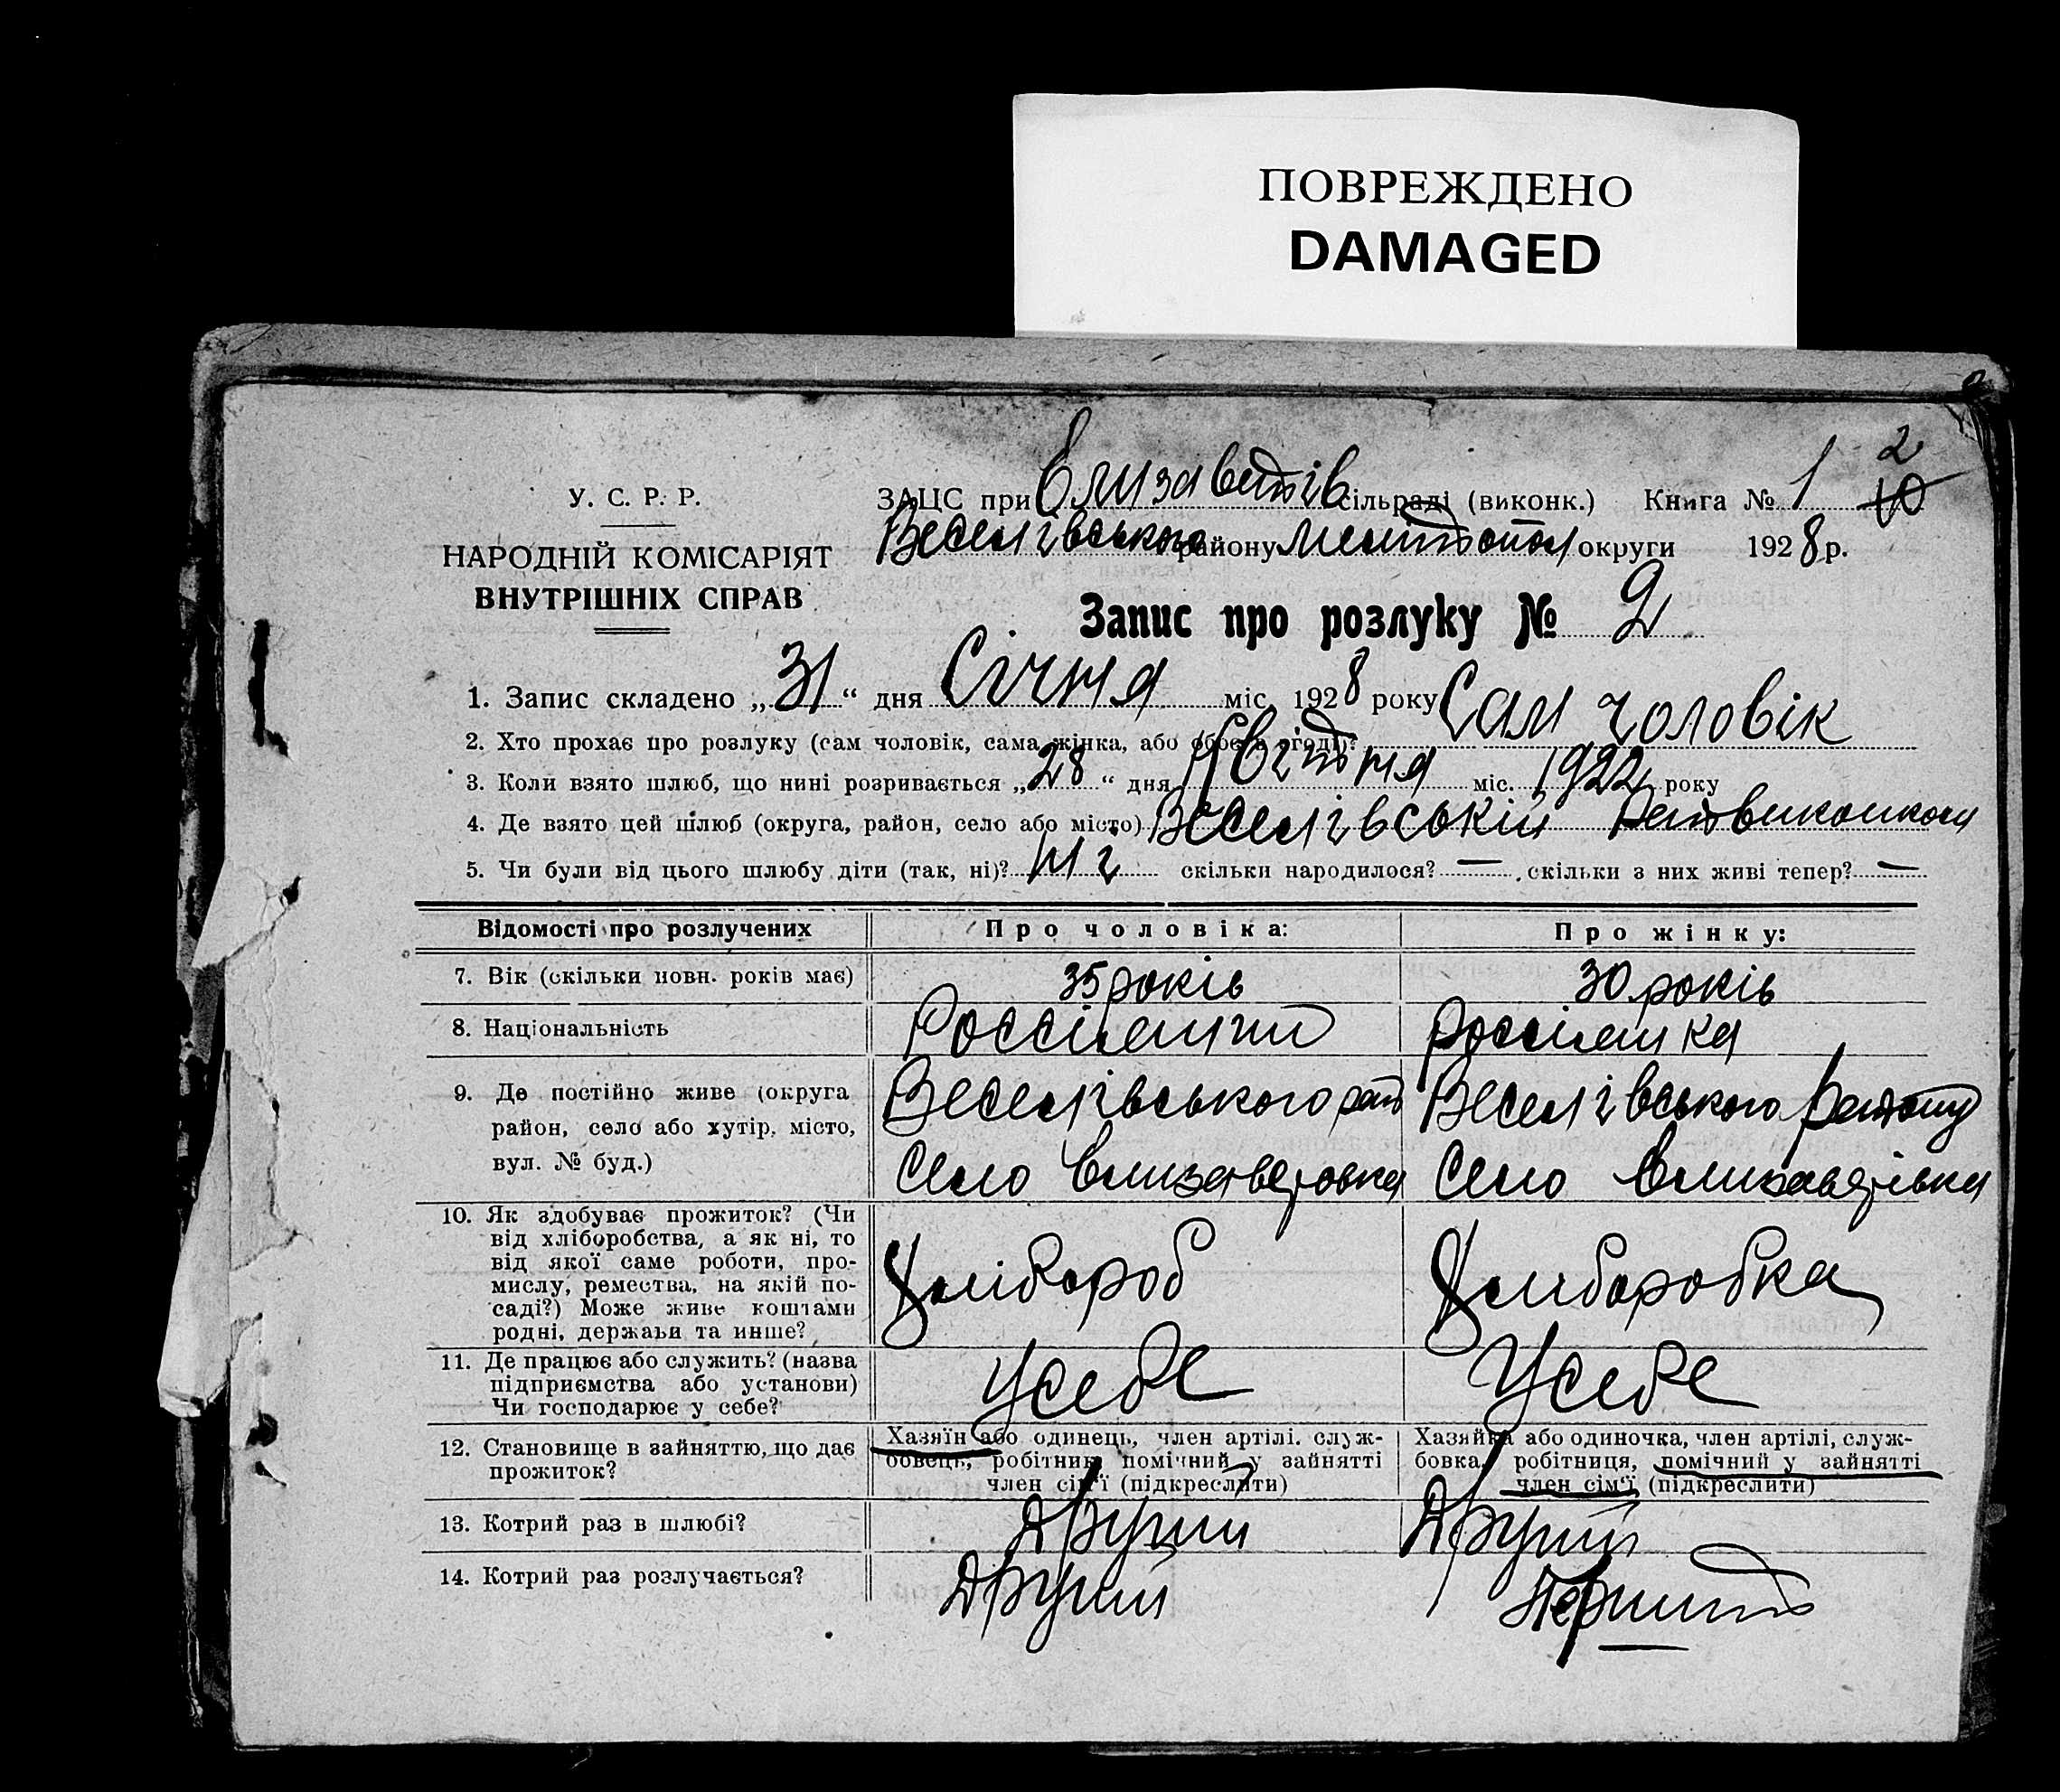 ПОВРЕЖДЕНО
DAMAGED
У. С. Р. Р.
НАРОДНІЙ КОМІСАРІЯТ
ВНУТРІШНІХ СПРАВ
ЗАЦС при Елизаветів сільраді (виконк.) Книга № 1 2 10
Веселівського району Мелітопол округи 1928 р.
Запис про розлуку № 2
1. Запис складено „31“ дня Січня міс. 1928 року
2. Хто прохає про розлуку (сам чоловік, сама жінка, або обоє в згоді)? Сам чоловік
3. Коли взято шлюб, що нині розривається „28“ дня Квітня міс. 1922 року
4. Де взято цей шлюб (округа, район, село або місто) Веселівський Райвиконком
5. Чи були від цього шлюбу діти (так, ні)? Ні скільки народилося? — скільки з них живі тепер? —
Відомості про розлучених Про чоловіка: Про жінку:
7. Вік (скільки повн. років має) 35 років 30 років
8. Національність Россіянин россіянка
9. Де постійно живе (округа
район, село або хутір, місто,
вул. № буд.)
Веселівського рай
Село Елизаветовка
Веселівського Району
Село Елизаветівка
10. Як здобуває прожиток? (Чи
від хліборобства, а як ні, то
від якої саме роботи, про-
мислу, ремества, на якій по-
саді?) Може живе коштами
родні, держави та инше?
Хлібороб
Хлиборобка
11. Де працює або служить? (назва
підприємства або установи)
Чи господарює у себе?
У себе
У себе
12. Становище в зайняттю, що дає
прожиток?
Хазяїн або одинець, член артілі, служ-
бовець, робітник помічний у зайнятті
член сім'ї (підкреслити)
Хазяйка або одиночка, член артілі, служ-
бовка, робітниця, помічний у зайнятті
член сім'ї (підкреслити)
13. Котрий раз в шлюбі? Другий Другий
14. Котрий раз розлучається? Другий Перший